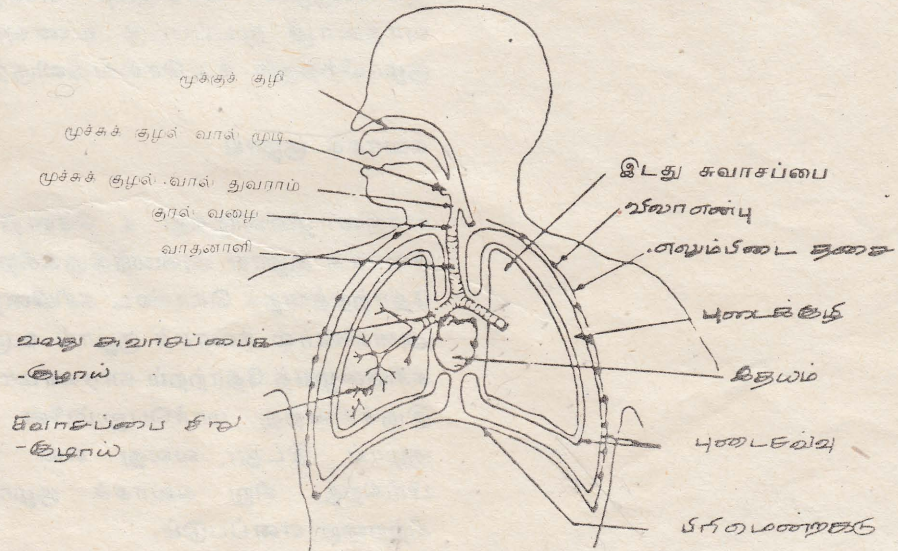 மூக்குக் குழி
மூச்சுக் குழல் வால் மூடி
மூச்சுக் குழல் வால் துவராம்
குரல் வழை
வாதனாளி
வலது சுவாசப்பைக்
-குழாய்
சுவாசப்பை சிறு
-குழாய்
இடது சுவாசப்பை
விலாஎன்பு
எலும்பிடை தசை
புடைக்குழி
இதயம்
புடைசவ்வு
பிரிமென்றகடு